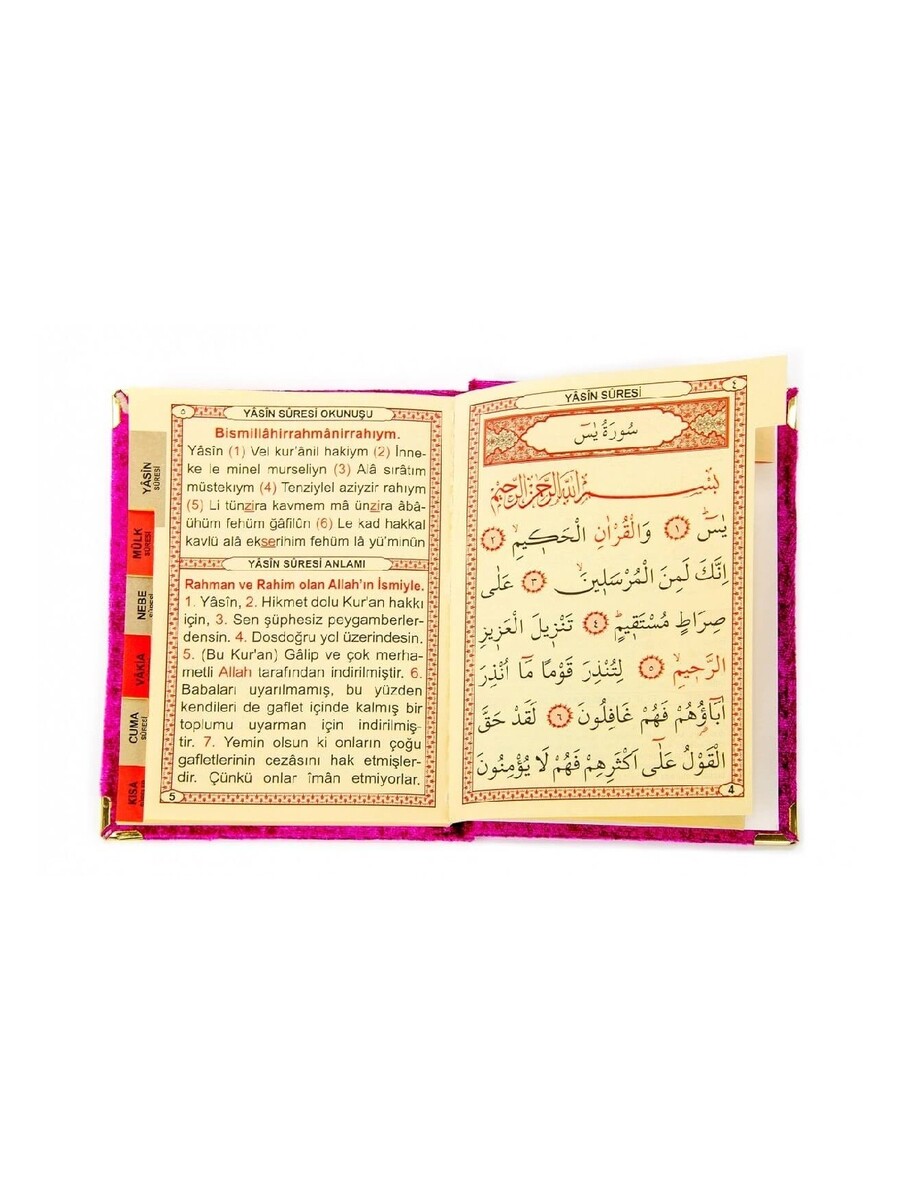 ٤
YÂSÎN SÛRESİ
سُورَةُ يٰسٓ
بِسْمِ اللّٰهِ الرَّحْمٰنِ الرَّحِيمِ
يٰسٓۜ ﴿١﴾ وَالْقُرْاٰنِ الْحَك۪يمِۙ ﴿٢﴾
اِنَّكَ لَمِنَ الْمُرْسَل۪ينَۙ ﴿٣﴾ عَلٰى
صِرَاطٍ مُسْتَق۪يمٍۜ ﴿٤﴾ تَنْز۪يلَ الْعَز۪يزِ
الرَّح۪يمِۙ ﴿٥﴾ لِتُنْذِرَ قَوْمًا مَٓا اُنْذِرَ
اٰبَٓاؤُ۬هُمْ فَهُمْ غَافِلُونَ ﴿٦﴾ لَقَدْ حَقَّ
الْقَوْلُ عَلٰٓى اَكْثَرِهِمْ فَهُمْ لَا يُؤْمِنُونَ
4
٥
YÂSİN SÛRESİ OKUNUŞU
Bismillâhirrahmânirrahıym.
Yâsîn (1) Vel kur'ânil hakiym (2) İnne-
ke le minel murseliyn (3) Alâ sırâtım
müstekıym (4) Tenziylel aziyzir rahıym
(5) Li tünzira kavmem mâ ünzira âbâ-
ühüm fehüm ğâfilûn (6) Le kad hakkal
kavlü alâ ekserihim fehüm lâ yü'minûn
YÂSİN SÛRESİ ANLAMI
Rahman ve Rahim olan Allah'ın İsmiyle.
1. Yâsîn, 2. Hikmet dolu Kur'an hakkı
için, 3. Sen şüphesiz peygamberler-
densin. 4. Dosdoğru yol üzerindesin.
5. (Bu Kur'an) Gâlip ve çok merha-
metli Allah tarafından indirilmiştir. 6.
Babaları uyarılmamış, bu yüzden
kendileri de gaflet içinde kalmış bir
toplumu uyarman için indirilmiş-
tir. 7. Yemin olsun ki onların çoğu
gafletlerinin cezâsını hak etmişler-
dir. Çünkü onlar îmân etmiyorlar.
5
YÂSİN
SÛRESİ
MÜLK
SÛRESİ
NEBE
VÂKIA
CUMA
SÛRESİ
KISA